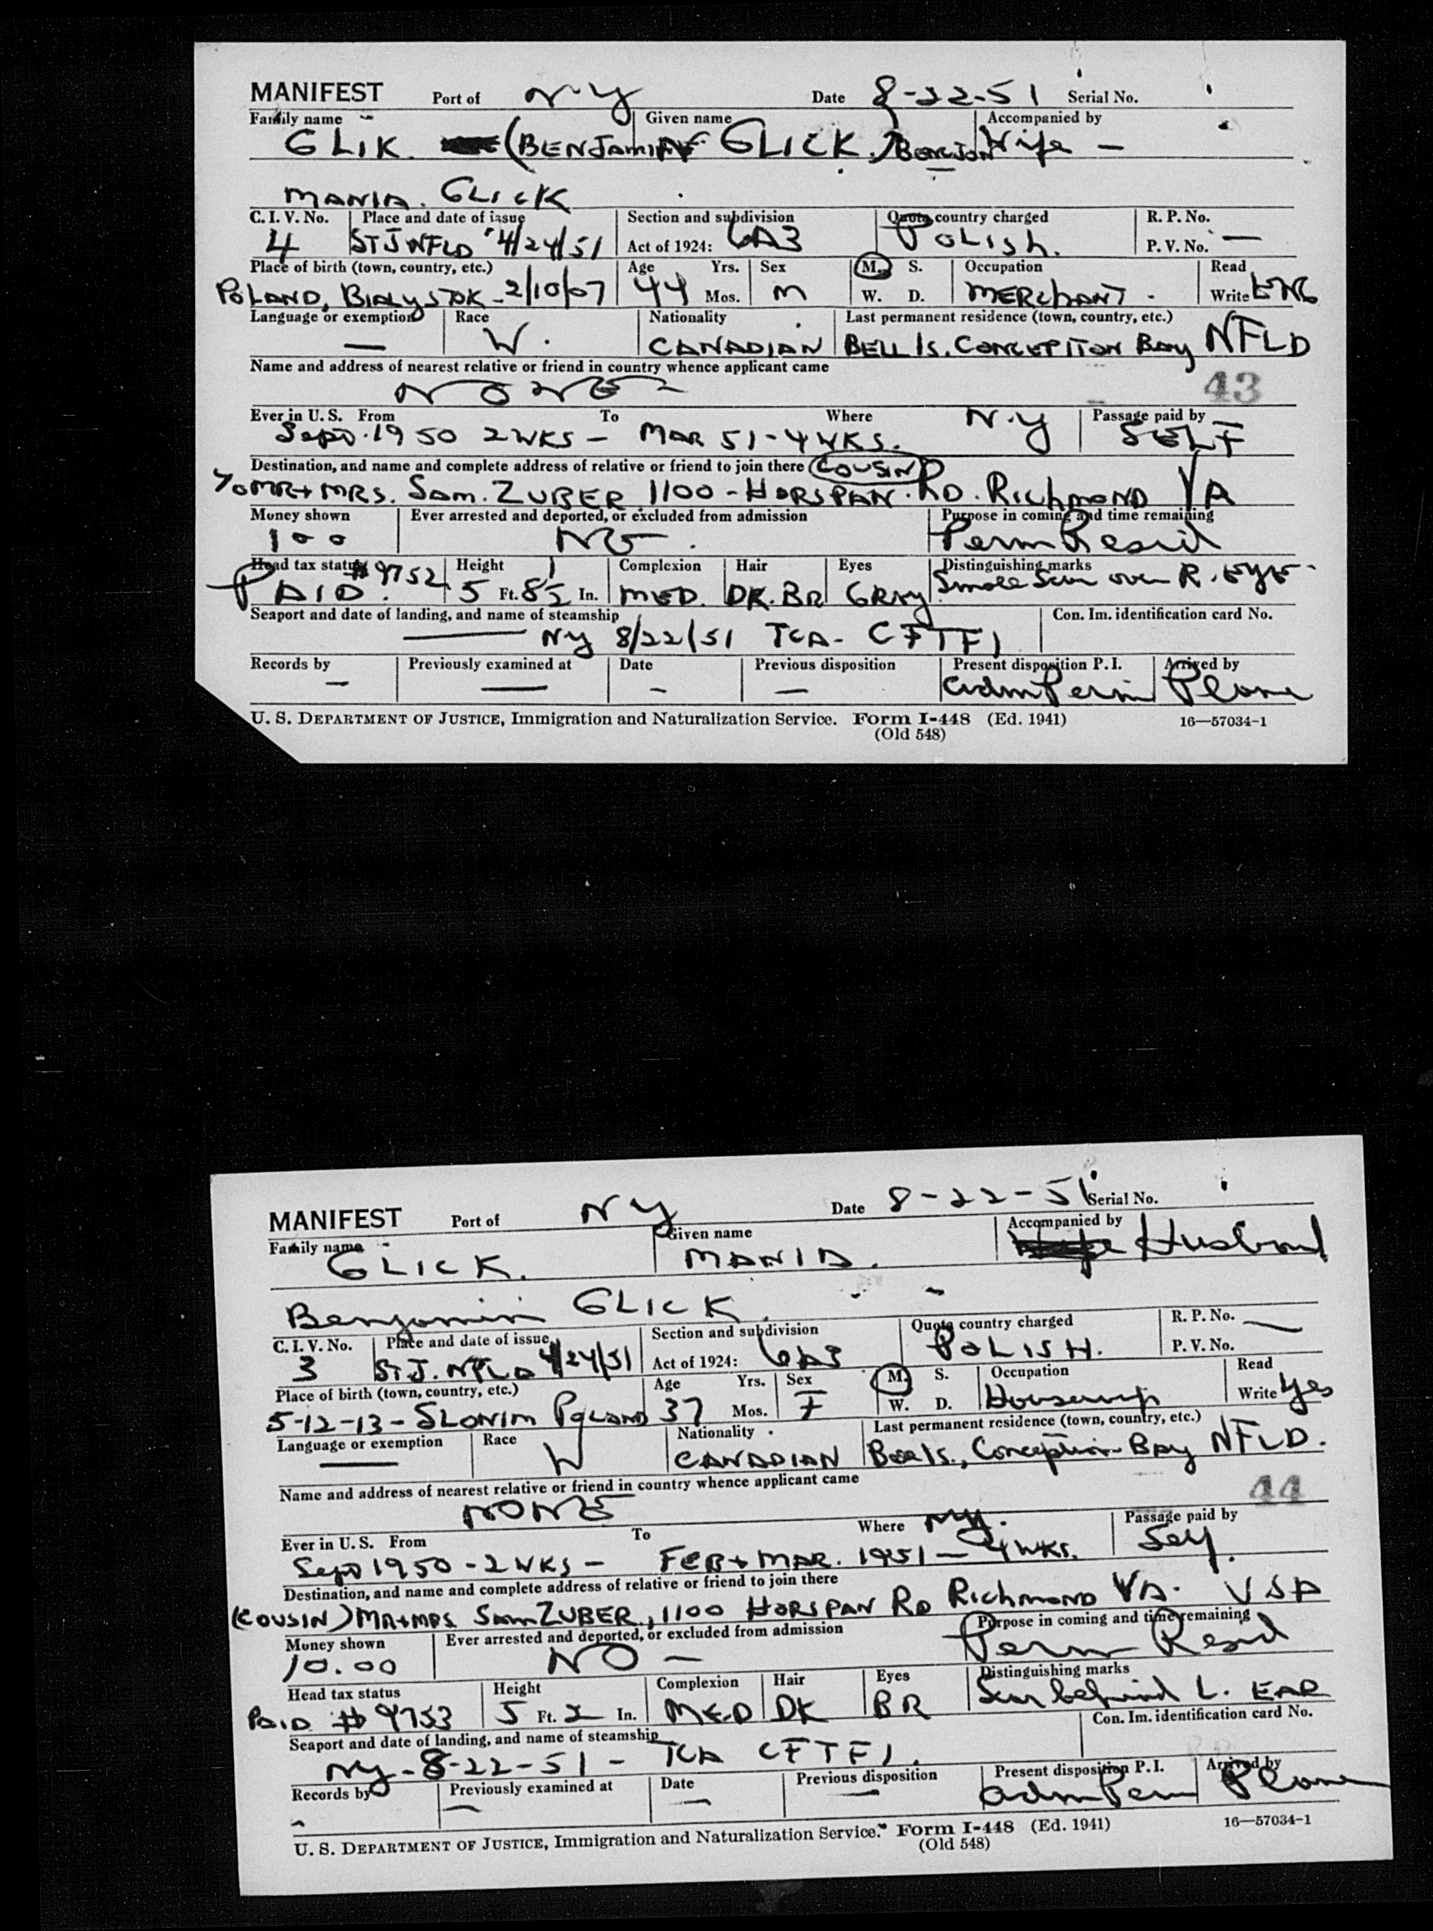 MANIFEST Port of N-Y Date 8-22-51 Serial No.
Family name Given name Accompanied by
GLIK. (BENJAMIN GLICK.) Wife —
MANIA. GLICK
C. I. V. No. Place and date of issue Section and subdivision Quota country charged R. P. No.
4 ST J NFLD 4/24/51 Act of 1924: 6A3 POLISH. P. V. No. —
Place of birth (town, country, etc.) Age Yrs. Sex M. S. Occupation Read
POLAND, BIALYSTOK - 2/10/07 44 Mos. M W. D. MERCHANT - Write ENG
Language or exemption Race Nationality Last permanent residence (town, country, etc.)
— W. CANADIAN BELL IS. CONCEPTION BAY NFLD
Name and address of nearest relative or friend in country whence applicant came
NONE - 43
Ever in U. S. From To Where N-Y Passage paid by
Sept. 1950 2 WKS - MAR 51-4 WKS. SELF
Destination, and name and complete address of relative or friend to join there (COUSIN)
MR+MRS. SAM. ZUBER 1100 - HORSPAN. RD. RICHMOND VA
Money shown Ever arrested and deported, or excluded from admission Purpose in coming and time remaining
100 NO. Perm Resid
Head tax status #9752 Height Complexion Hair Eyes Distinguishing marks
PAID. 5 Ft. 8½ In. MED. DK. BR GRAY Small Scar over R. EYE.
Seaport and date of landing, and name of steamship Con. Im. identification card No.
— NY 8/22/51 TCA - CFTFJ
Records by Previously examined at Date Previous disposition Present disposition P. I. Arrived by
— — — — Adm Perm Plane
U. S. DEPARTMENT OF JUSTICE, Immigration and Naturalization Service. Form I-448 (Ed. 1941) 16—57034-1
(Old 548)
MANIFEST Port of NY Date 8-22-51 Serial No.
Family name Given name Accompanied by
GLICK. MANIA. Husband
Benjamin GLICK.
C. I. V. No. Place and date of issue Section and subdivision Quota country charged R. P. No. —
3 ST J. NFLD 4/24/51 Act of 1924: 6A3 POLISH. P. V. No.
Place of birth (town, country, etc.) Age Yrs. Sex M. S. Occupation Read
5-12-13 - SLONIM POLAND 37 Mos. F W. D. Housewife Write Yes
Language or exemption Race Nationality Last permanent residence (town, country, etc.)
— W CANADIAN Bell Is., Conception Bay NFLD.
Name and address of nearest relative or friend in country whence applicant came
NONE 44
Ever in U. S. From To Where NY. Passage paid by
Sept 1950 - 2 WKS - FEB + MAR. 1951 - 4 WKS. Self.
Destination, and name and complete address of relative or friend to join there
(COUSIN) MR+MRS SAM ZUBER, 1100 HORSPAN RD RICHMOND VA. USA
Money shown Ever arrested and deported, or excluded from admission Purpose in coming and time remaining
10.00 NO - Perm Resid
Head tax status Height Complexion Hair Eyes Distinguishing marks
PAID #9753 5 Ft. 2 In. MED DK BR Scar behind L. EAR
Seaport and date of landing, and name of steamship Con. Im. identification card No.
NY - 8-22-51 - TCA CFTFJ.
Records by Previously examined at Date Previous disposition Present disposition P. I. Arrived by
- — — — Adm Perm Plane
U. S. DEPARTMENT OF JUSTICE, Immigration and Naturalization Service. Form I-448 (Ed. 1941) 16—57034-1
(Old 548)